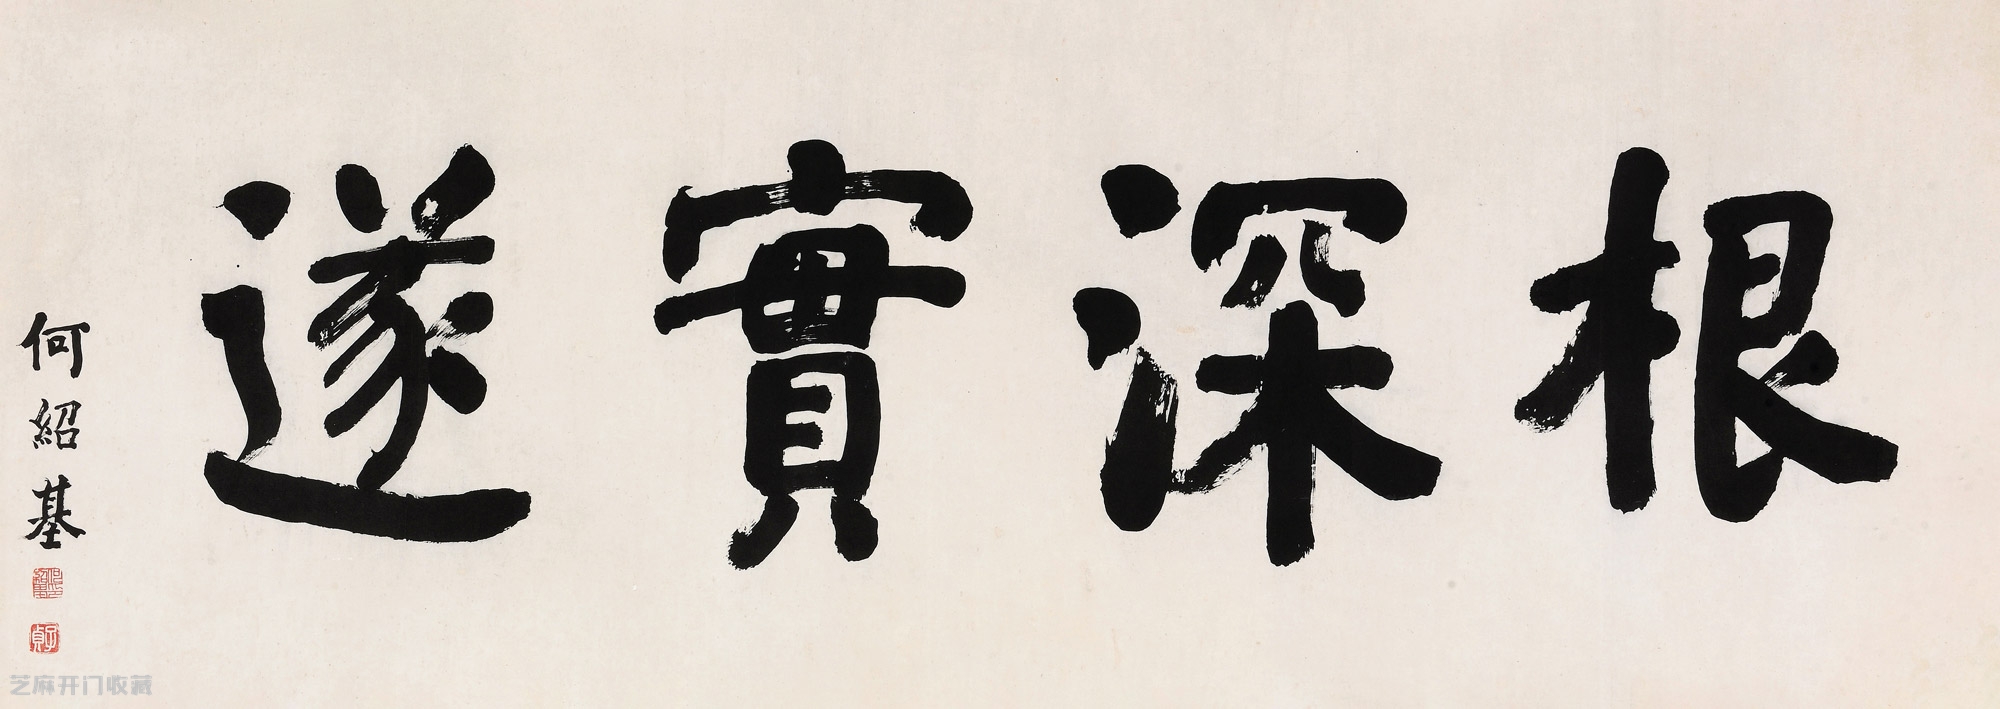 根深實遂
何紹基
子貞
芝麻开门收藏